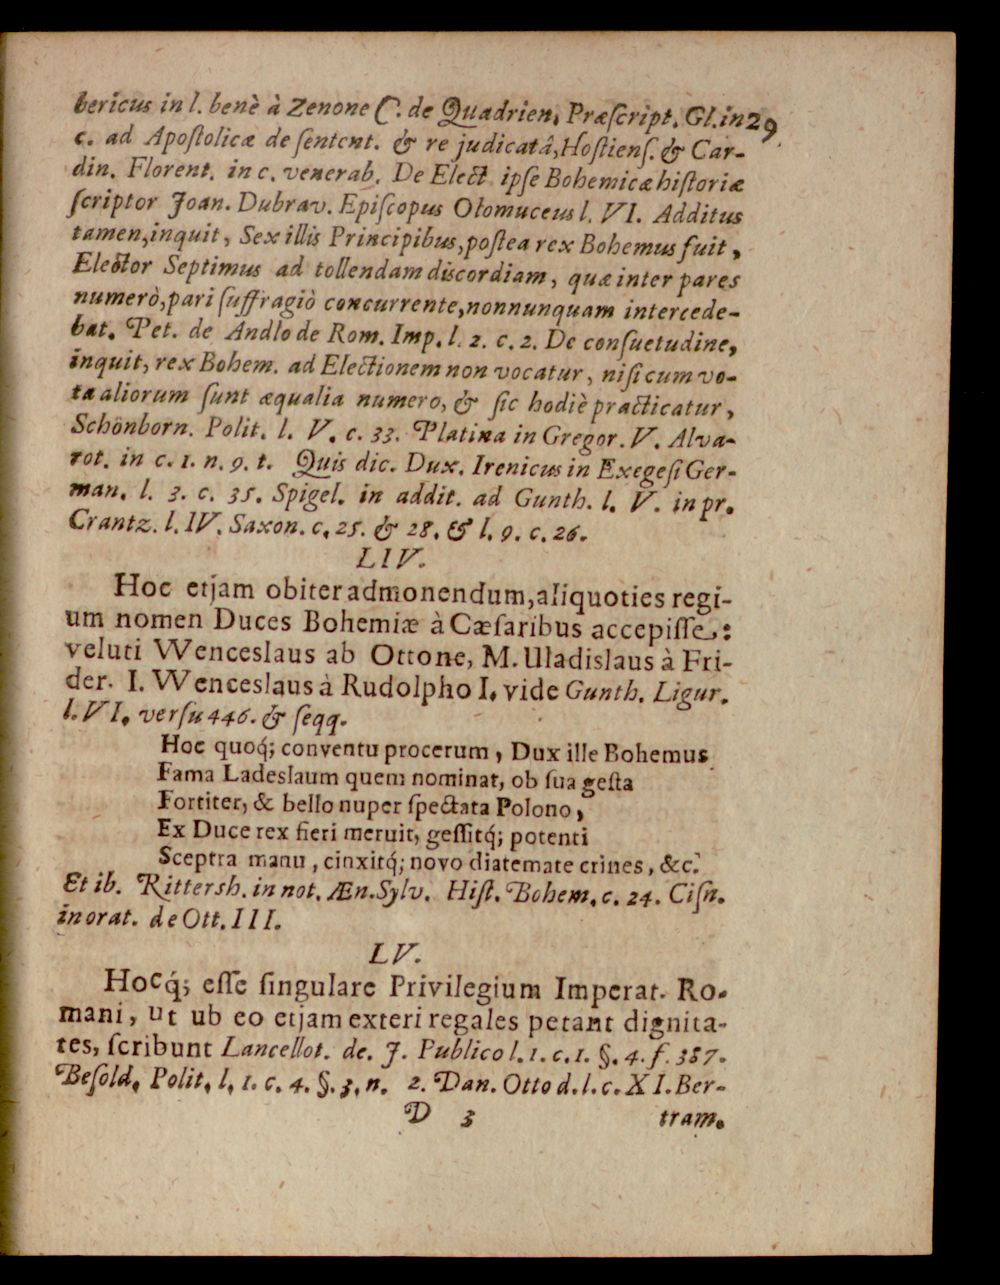 bericus in l. benè à Zenone C. de Quadrien. Præſcript. Gl. in 29
c. ad Apoſtolicæ de ſentent. & re judicatâ, Hoſtienſ. & Car-
din. Florent. in c. venerab. De Elect ipſe Bohemicæ hiſtoriæ
ſcriptor Joan. Dubrav. Epiſcopus Olomuceus l. VI. Additus
tamen, inquit, Sex illis Principibus, poſtea rex Bohemus fuit,
Elector Septimus ad tollendam discordiam, quæ inter pares
numerò, pari ſuffragiò concurrente, nonnunquam intercede-
bat. Pet. de Andlo de Rom. Imp. l. 2. c. 2. De conſuetudine,
inquit, rex Bohem. ad Electionem non vocatur, niſi cum vo-
ta aliorum ſunt æqualia numero, & ſic hodiè practicatur,
Schönborn. Polit. l. V. c. 33. Platina in Gregor. V. Alva-
rot. in c. 1. n. 9. t. Quis dic. Dux. Irenicus in Exegeſi Ger-
man. l. 3. c. 35. Spigel. in addit. ad Gunth. l. V. in pr.
Crantz. l. IV. Saxon. c. 25. & 28. & l. 9. c. 26.
LIV.
Hoc etjam obiter admonendum, aliquoties regi-
um nomen Duces Bohemiæ à Cæſaribus accepiſſe:
veluti Wenceslaus ab Ottone, M. Uladislaus à Fri-
der. I. Wenceslaus à Rudolpho I. vide Gunth. Ligur.
l. VI. verſu 446. & ſeqq.
Hoc quoq́; conventu procerum, Dux ille Bohemus
Fama Ladeslaum quem nominat, ob ſua geſta
Fortiter, & bello nuper ſpectata Polono,
Ex Duce rex fieri meruit, geſſitq́; potenti
Sceptra manu, cinxitq́; novo diatemate crines, &c.
Et ib. Rittersh. in not. Æn. Sylv. Hiſt. Bohem. c. 24. Ciſn.
in orat. de Ott. III.
LV.
Hocq́; eſſe ſingulare Privilegium Imperat. Ro-
mani, ut ub eo etjam exteri regales petant dignita-
tes, ſcribunt Lancellot. de. J. Publico l. 1. c. 1. §. 4. f. 387.
Beſold. Polit. l. 1. c. 4. §. 3. n. 2. Dan. Otto d. l. c. XI. Ber-
D 3 tram.